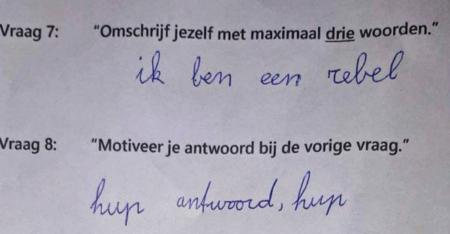 Vraag 7: "Omschrijf jezelf met maximaal drie woorden."
ik ben een rebel
Vraag 8: "Motiveer je antwoord bij de vorige vraag."
hup antwoord, hup